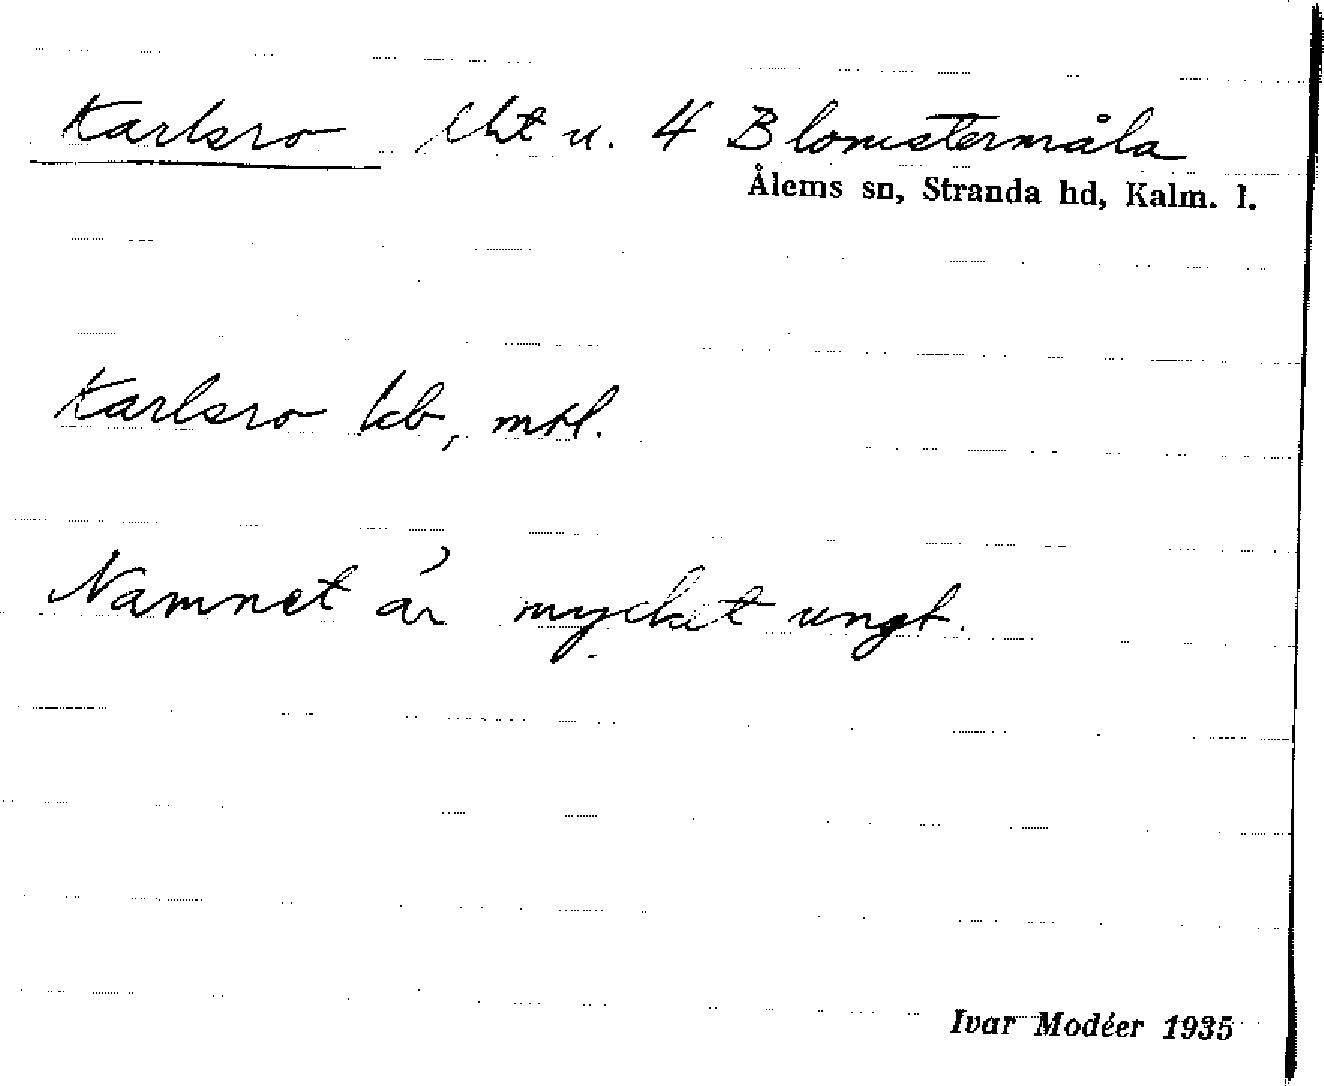 Karlsro lht u. 4 Blomstermåla
Ålems sn, Stranda hd, Kalm. l.
Karlsro kb, mtl.
Namnet är mycket ungt.
Ivar Modéer 1935